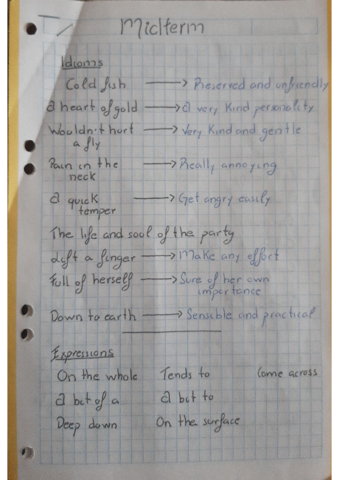 Midterm
Idioms
Cold fish → Preserved and unfriendly
a heart of gold → a very kind personality
Wouldn't hurt → Very kind and gentle
a fly
Pain in the → Really annoying
neck
a quick → Get angry easily
temper
The life and soul of the party
Lift a finger → Make any effort
Full of herself → Sure of her own
importance
Down to earth → Sensible and practical
Expressions
On the whole Tends to Come across
a bit of a a bit to
Deep down On the surface